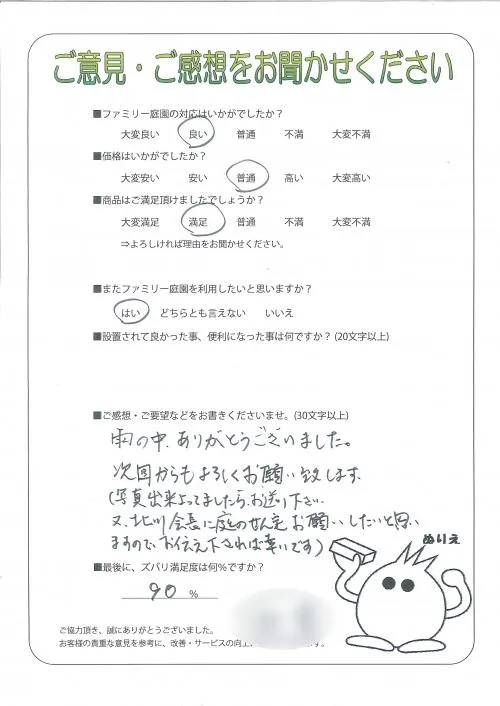 ご意見・ご感想をお聞かせください
■ファミリー庭園の対応はいかがでしたか？
大変良い 良い 普通 不満 大変不満
■価格はいかがでしたか？
大変安い 安い 普通 高い 大変高い
■商品はご満足頂けましたでしょうか？
大変満足 満足 普通 不満 大変不満
⇒よろしければ理由をお聞かせください。
■またファミリー庭園を利用したいと思いますか？
はい どちらとも言えない いいえ
■設置されて良かった事、便利になった事は何ですか？(20文字以上)
■ご感想・ご要望などをお書きくださいませ。(30文字以上)
雨の中、ありがとうございました。
次回からもよろしくお願い致します
(写真出来上ってましたら、お送り下さい
又、北川会長に庭のせん定お願いしたいと思い
ますので、お伝え下されば幸いです)
ぬりえ
■最後に、ズバリ満足度は何％ですか？
90 %
ご協力頂き、誠にありがとうございました。
お客様の貴重な意見を参考に、改善・サービスの向上に ます。